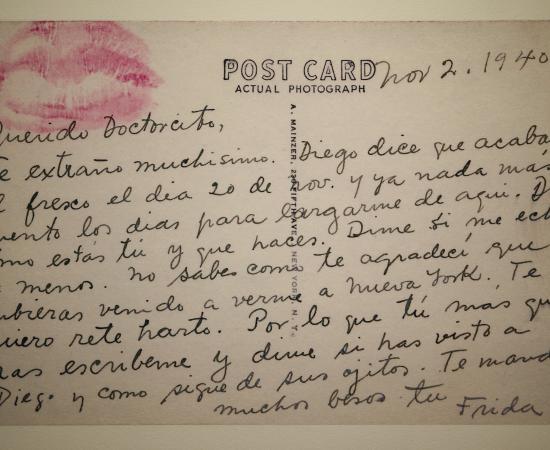 POST CARD
ACTUAL PHOTOGRAPH
Nov 2. 1940
Querido Doctorcito,
Te extraño muchisimo. Diego dice que acaba
fresco el dia 20 de Nov. y ya nada mas
cuento los dias para largarme de aqui.
como estás tú y que haces. Dime si me
menos. No sabes como te agradecí que
hubieras venido a verme a Nueva York. Te
quiero rete harto. Por lo que tú mas
escribeme y dime si has visto a
Diego y como sigue de sus ojitos. Te mando
muchos besos tu Frida
A. MAINZER, NEW YORK, N. Y.